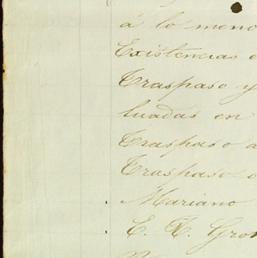 á lo meno
Existencias e
Traspaso y
luadas en
Traspaso a
Traspaso
Mariano
E. T. Gro